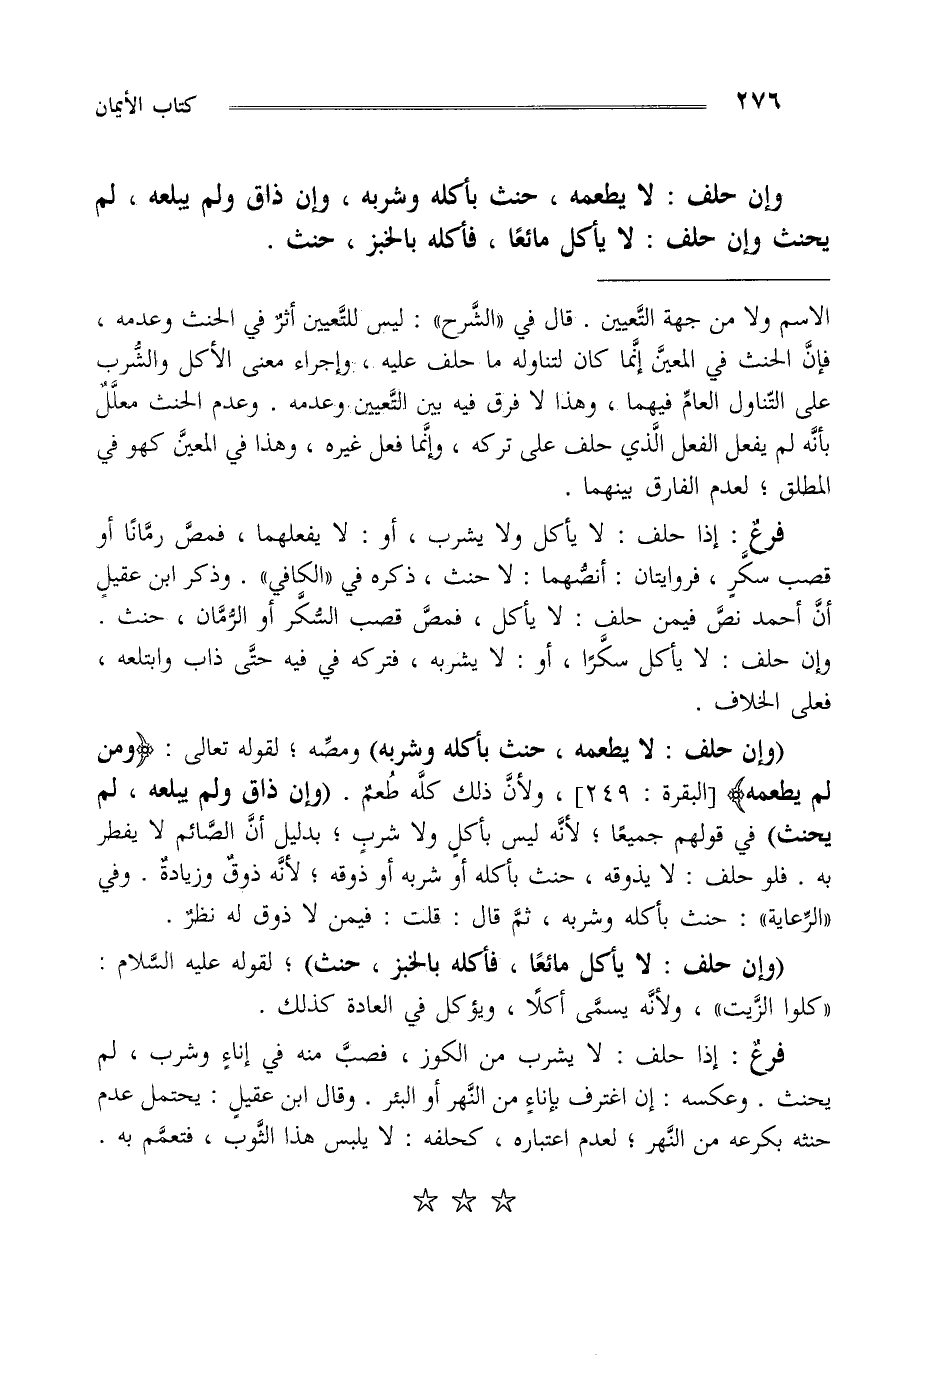 ٢٧٦ كتاب الأيمان
وإن حلف : لا يطعمه ، حنث بأكله وشربه ، وإن ذاق ولم يبلعه ، لم
يحنث وإن حلف : لا يأكل مائعًا ، فأكله بالخبز ، حنث .
الاسم ولا من جهة التَّعيين . قال في «الشَّرح» : ليس للتَّعيين أثرٌ في الحنث وعدمه ،
فإنَّ الحنث في المعيَّن إنَّما كان لتناوله ما حلف عليه ، وإجراء معنى الأكل والشُّرب
على التّناول العامِّ فيهما ، وهذا لا فرق فيه بين التَّعيين وعدمه . وعدم الحنث معلَّلٌ
بأنَّه لم يفعل الفعل الَّذي حلف على تركه ، وإنَّما فعل غيره ، وهذا في المعيَّن كهو في
المطلق ؛ لعدم الفارق بينهما .
فرعٌ : إذا حلف : لا يأكل ولا يشرب ، أو : لا يفعلهما ، فمصَّ رمَّانًا أو
قصب سكَّرٍ ، فروايتان : أنصُّهما : لا حنث ، ذكره في «الكافي» . وذكر ابن عقيلٍ
أنَّ أحمد نصَّ فيمن حلف : لا يأكل ، فمصَّ قصب السُّكَّر أو الرُّمَّان ، حنث .
وإن حلف : لا يأكل سكَّرًا ، أو : لا يشربه ، فتركه في فيه حتَّى ذاب وابتلعه ،
فعلى الخلاف .
(وإن حلف : لا يطعمه ، حنث بأكله وشربه) ومصِّه ؛ لقوله تعالى : ﴿ومن
لم يطعمه﴾ [البقرة : ٢٤٩] ، ولأنَّ ذلك كلَّه طُعمٌ . (وإن ذاق ولم يبلعه ، لم
يحنث) في قولهم جميعًا ؛ لأنَّه ليس بأكلٍ ولا شربٍ ؛ بدليل أنَّ الصَّائم لا يفطر
به . فلو حلف : لا يذوقه ، حنث بأكله أو شربه أو ذوقه ؛ لأنَّه ذوقٌ وزيادةٌ . وفي
«الرِّعاية» : حنث بأكله وشربه ، ثمَّ قال : قلت : فيمن لا ذوق له نظرٌ .
(وإن حلف : لا يأكل مائعًا ، فأكله بالخبز ، حنث) ؛ لقوله عليه السَّلام :
«كلوا الزَّيت» ، ولأنَّه يسمَّى أكلًا ، ويؤكل في العادة كذلك .
فرعٌ : إذا حلف : لا يشرب من الكوز ، فصبَّ منه في إناءٍ وشرب ، لم
يحنث . وعكسه : إن اغترف بإناءٍ من النَّهر أو البئر . وقال ابن عقيلٍ : يحتمل عدم
حنثه بكرعه من النَّهر ؛ لعدم اعتباره ، كحلفه : لا يلبس هذا الثَّوب ، فتعمَّم به .
☆ ☆ ☆